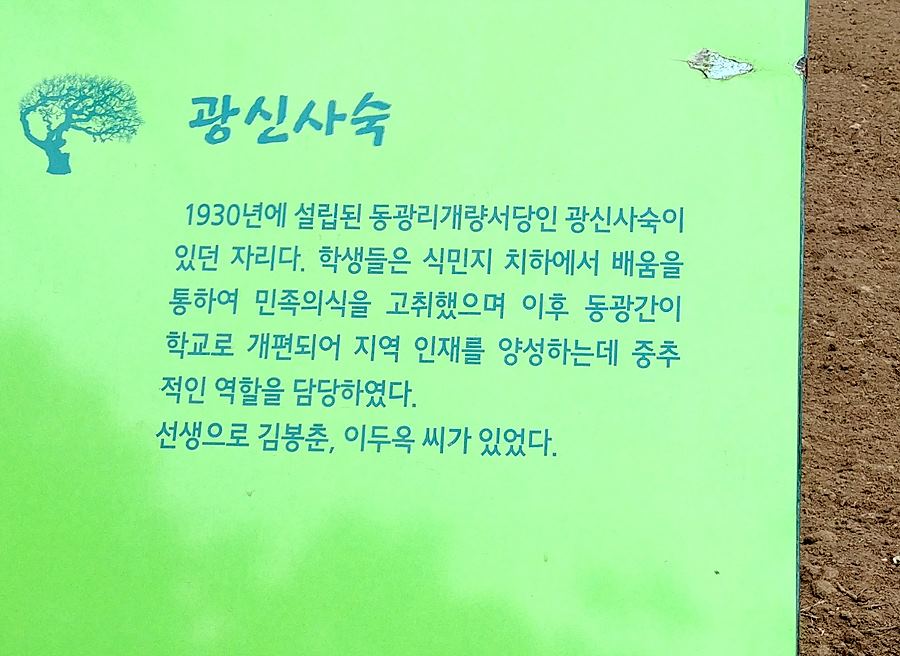 광신사숙
1930년에 설립된 동광리개량서당인 광신사숙이
있던 자리다. 학생들은 식민지 치하에서 배움을
통하여 민족의식을 고취했으며 이후 동광간이
학교로 개편되어 지역 인재를 양성하는데 중추
적인 역할을 담당하였다.
선생으로 김봉춘, 이두옥 씨가 있었다.